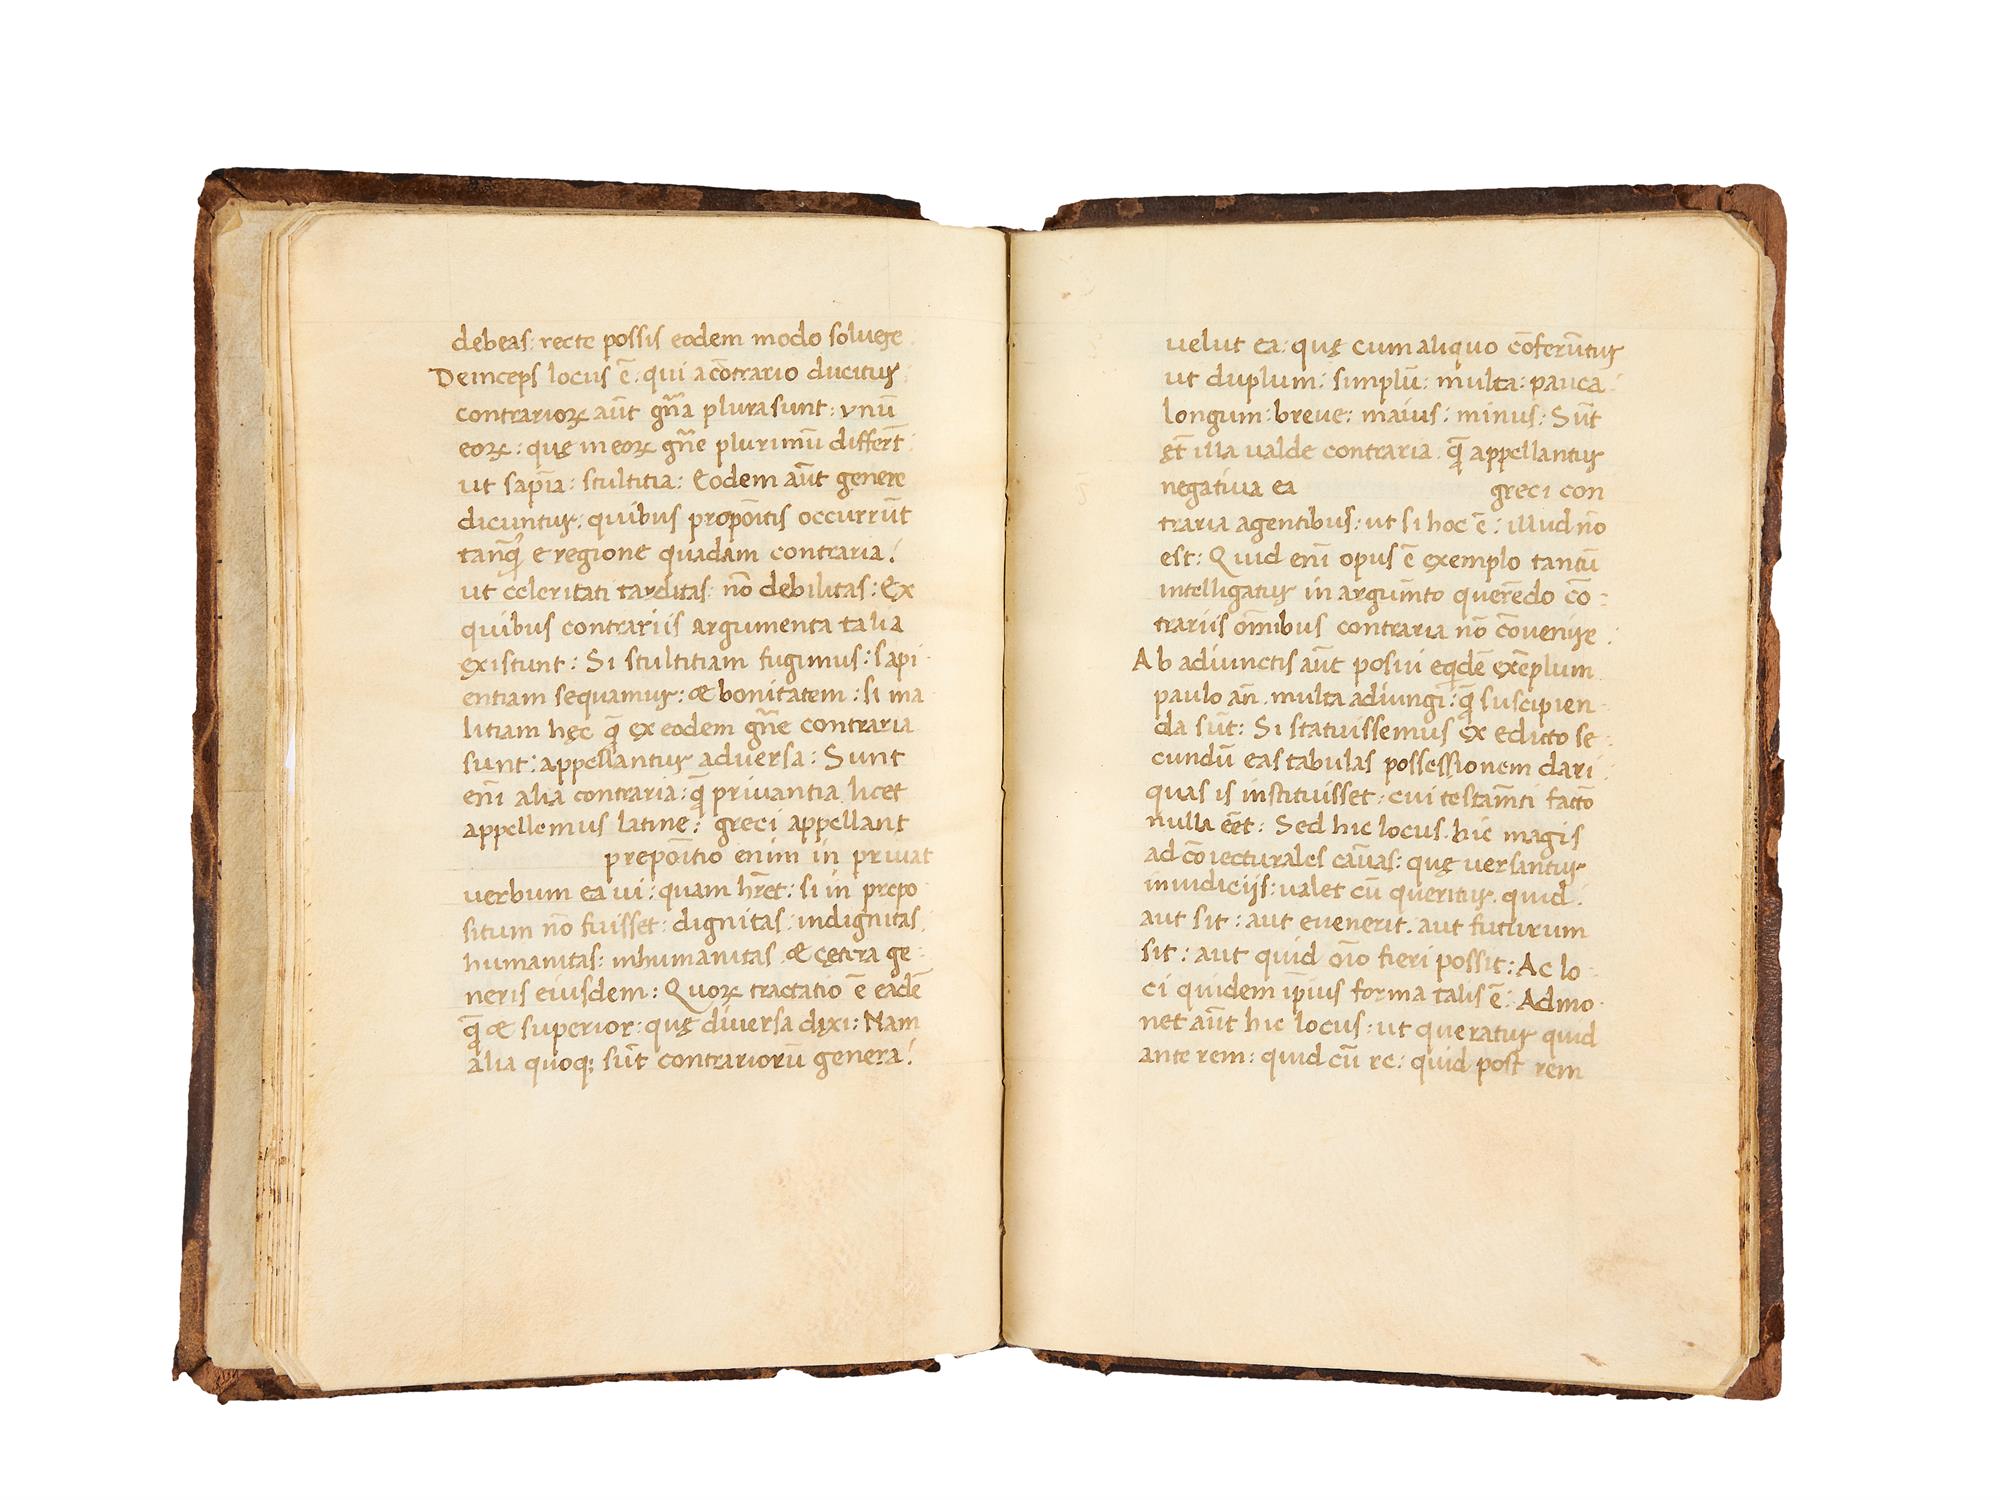 debeas: recte possis eodem modo soluere
Deinceps locus ē. qui a cōtrario ducitur
contrarioꝝ aūt gñā plura sunt: vnū
eoꝝ: quę in eoꝝ gñe plurimū differt̄
ut sapīa: stultitia: Eodem aūt genere
dicuntur: quibus propōitis occurrūt
tanq̄ e regione quadam contraria:
ut celeritati tarditas: nō debilitas: Ex
quibus contrariis argumenta talia
existunt: Si stultitiam fugimus: sapi
entiam sequamur: & bonitatem: si ma
litiam hęc q̄ ex eodem gñe contraria
sunt: appellantur aduersa: Sunt
eñi alia contraria: q̄ priuantia licet
appellemus latine: greci appellant
prepōitio enim in priuat
uerbum ea ui: quam hr̄et: si in prepo
situm nō fuisset: dignitas: indignitas
humanitas: inhumanitas & cętera ge
neris eiusdem: Quoꝝ tractatio ē eadē
q̄ & superior: quę diuersa dixi: Nam
alia quoq; sūt contrariorū genera:
uelut ea: quę cum aliquo cōferūtur
ut duplum: simplū: multa: pauca:
longum: breue: maius: minus: Sūt
ęt̄ illa ualde contraria q̄ appellantur
negatiua ea greci con
traria agentibus: ut si hoc ē: illud nō
est: Quid eñi opus ē exemplo tantū
intelligatur in argum̄to querēdo cō
trariis ōmibus contraria nō cōuenire:
Ab adiunctis aūt posui eqdē exēplum
paulo añ. multa adiungi: q̄ suscipien
da sūt: Si statuissemus ex edicto se
cundū eas tabulas possessionem dari
quas is instituisset: cui testam̄ti factō
nulla eēt: Sed hic locus hic magis
ad cōiecturales cāusas: quę uersantur
in iudiciis: ualet cū queritur. quid
aut sit: aut euenerit. aut futurum
sit: aut quid oīo fieri possit: Ac lo
ci quidem ip̄ius forma talis ē: Admo
net aūt hic locus: ut queratur quid
ante rem: quid cū re: quid post rem